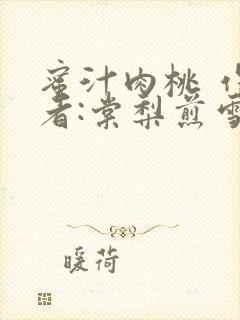 蜜汁肉桃 
者:棠梨煎雪
暖荷